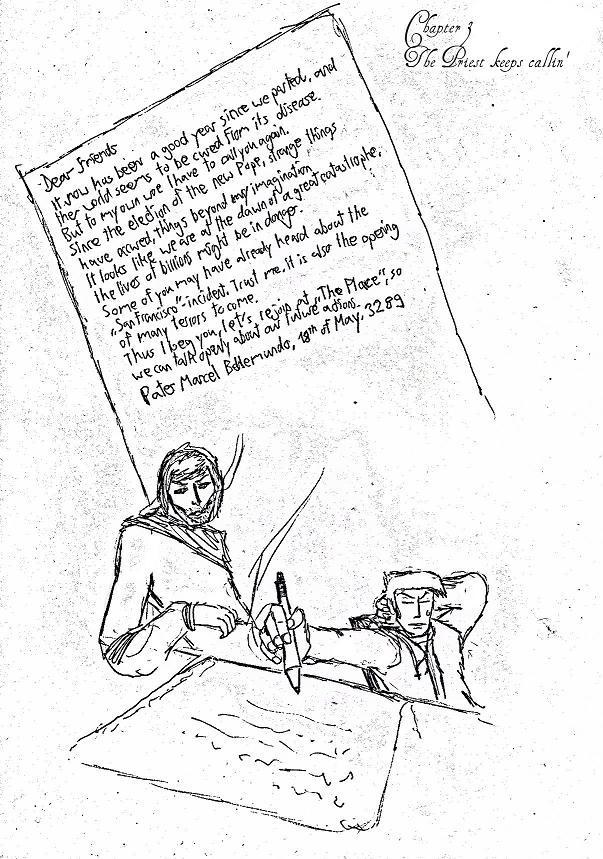 Chapter 3
The Priest keeps callin'
Dear friends
It now has been a good year since we parted, and
the world seems to be cured from its disease.
But to my own woe I have to call you again.
Since the election of the new Pope, strange things
have occured, things beyond any imagination.
It looks like we are at the dawn of a great catastrophe,
the lives of billions might be in danger.
Some of you may have already heard about the
„San Francisco"-incident. Trust me, it is also the opening
of many terrors to come.
Thus I beg you, let's rejoin at „The Place", so
we can talk openly about our future actions.
Pater Marcel 18th of May. 3289